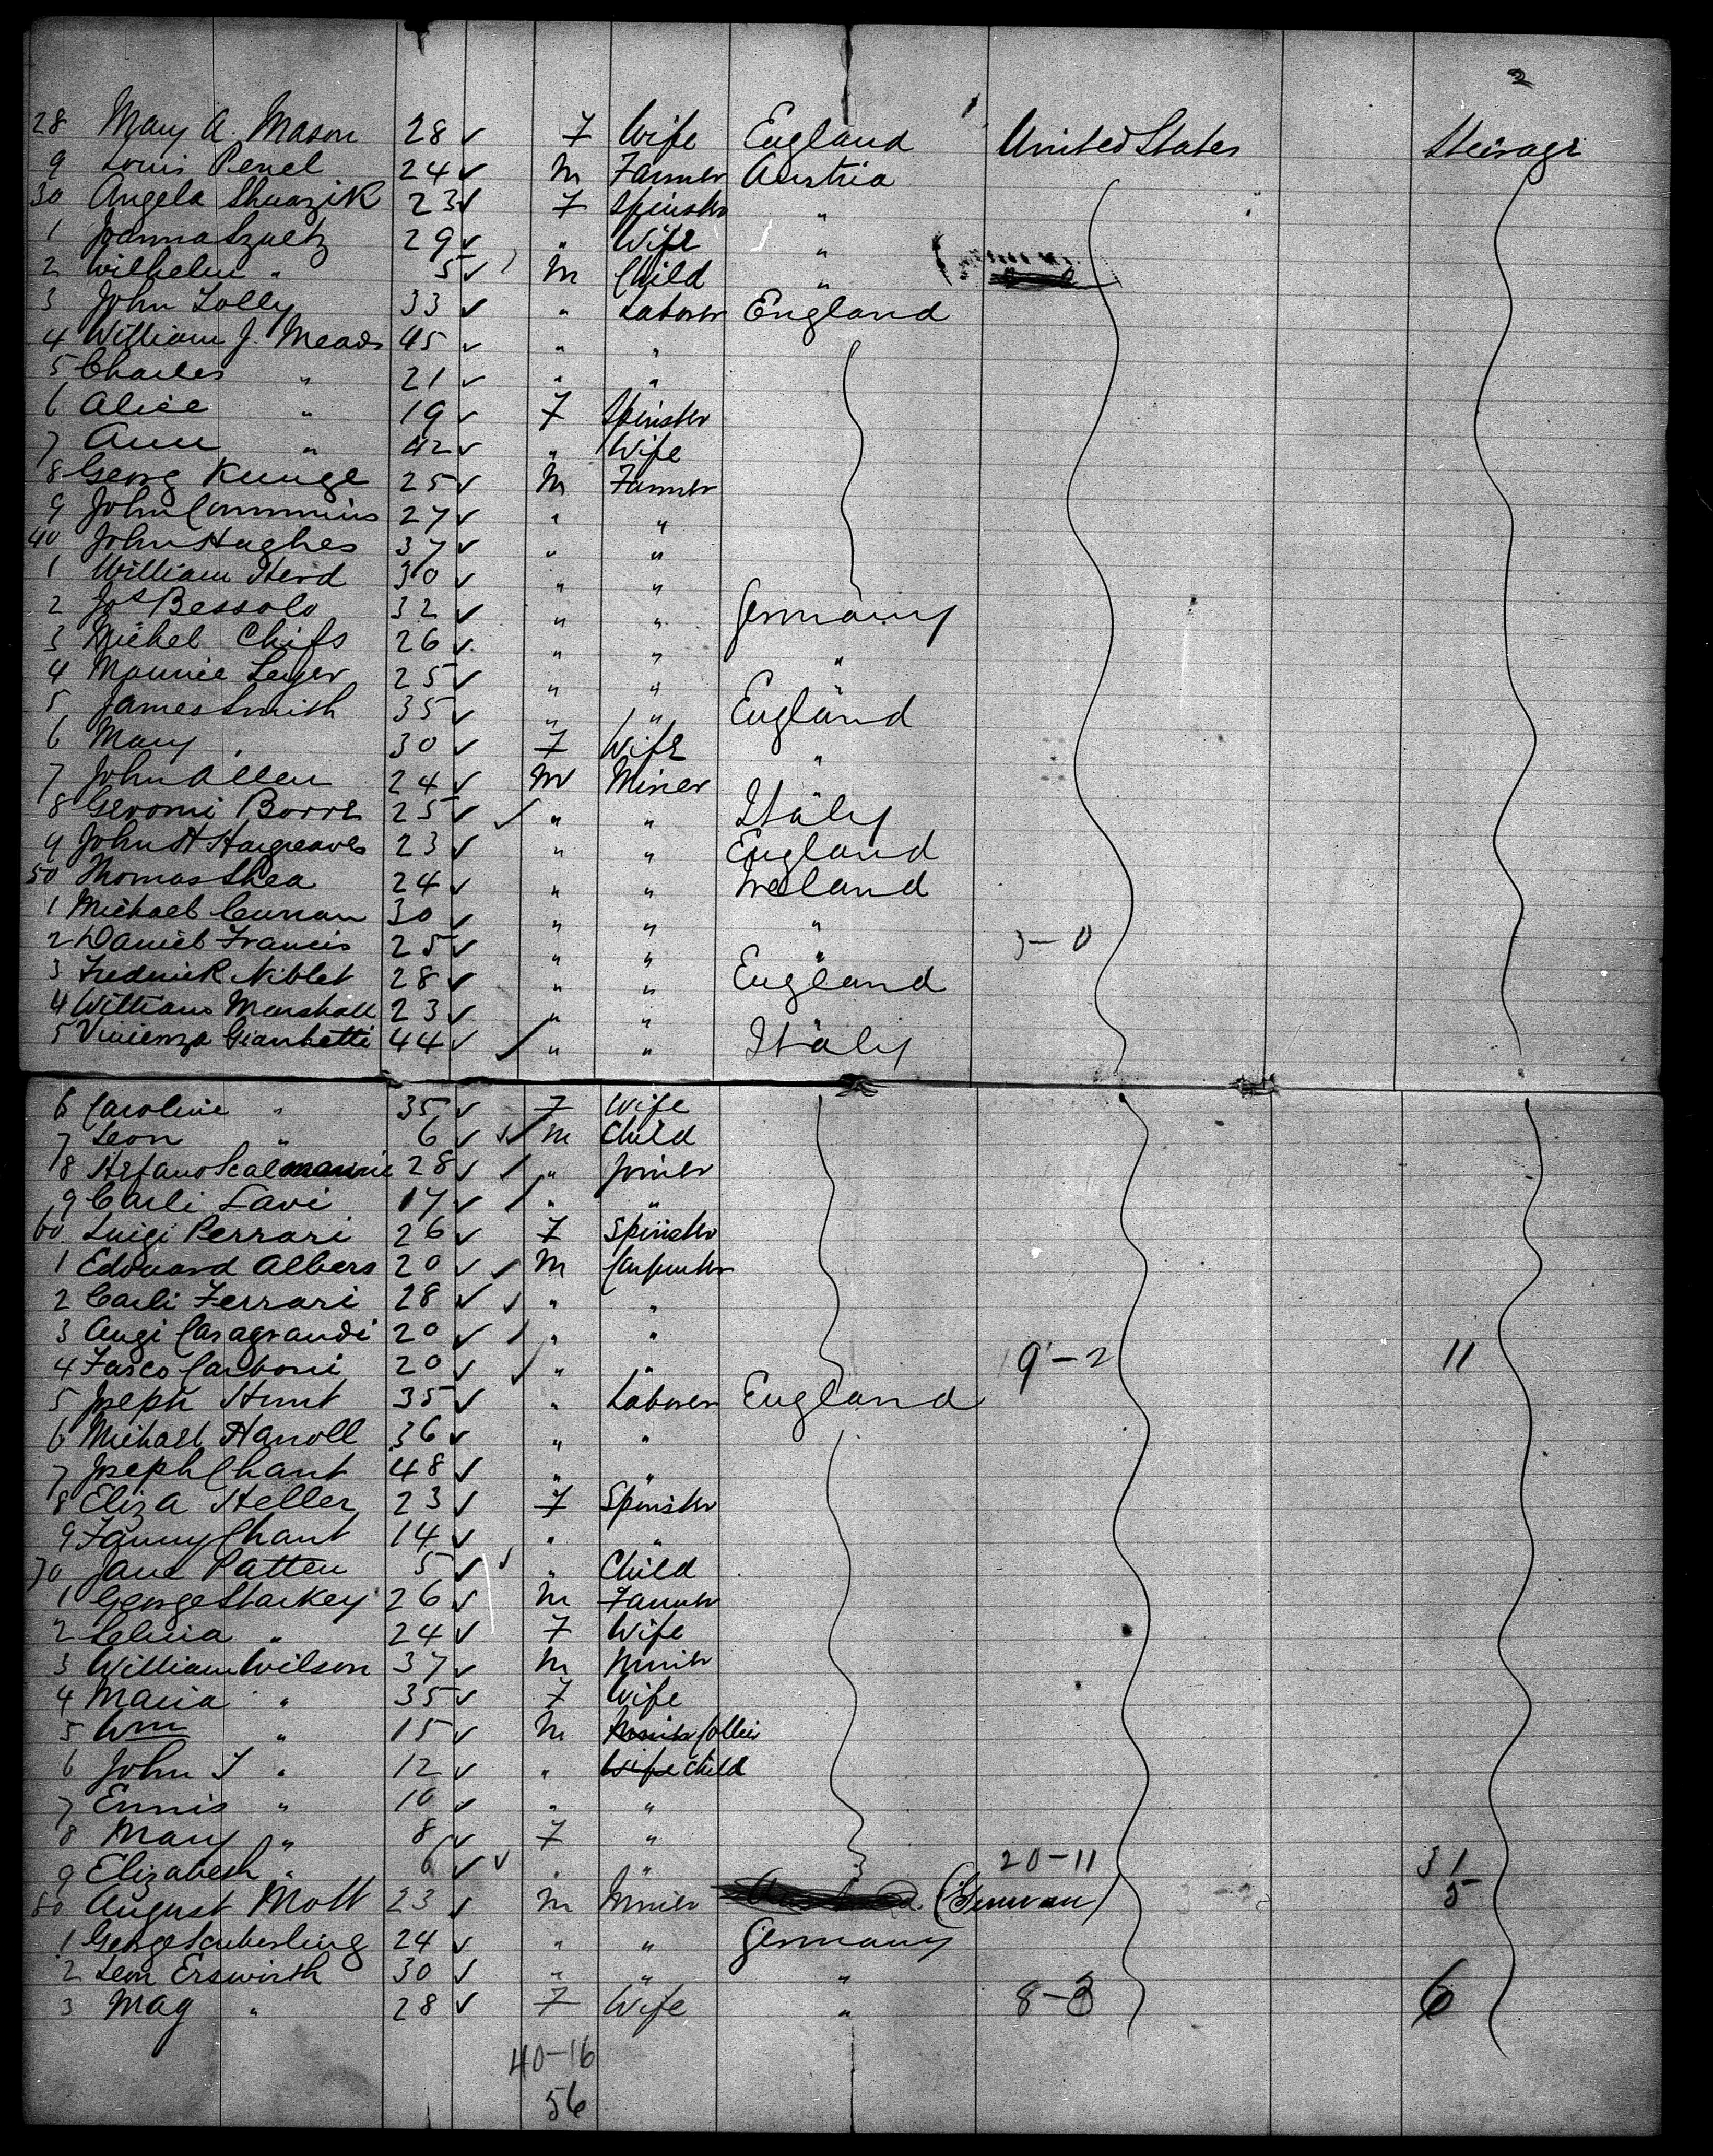 2
28 Mary A. Mason 28 ✓ F Wife England United States Steerage
9 Louis Penel 24 ✓ M Farmer Austria
30 Angela 23 ✓ F Spinster "
1 Joanna Szaltz 29 ✓ " Wife "
2 Wilhelm " 5 ✓ M Child "
3 John Lolly 33 ✓ " Laborer England
4 William J. Meads 45 ✓ " "
5 Charles " 21 ✓ " "
6 Alice " 19 ✓ F Spinster
7 Ann " 42 ✓ " Wife
8 Georg Kunge 25 ✓ M Farmer
9 John Commins 27 ✓ " "
40 John Hughes 37 ✓ " "
1 William Herd 30 ✓ " "
2 Jos Bessolo 32 ✓ " " Germany
3 Michel Chifs 26 ✓ " " "
4 Maurice Leyer 25 ✓ " "
5 James Smith 35 ✓ " " England
6 Mary " 30 ✓ F Wife "
7 John Allen 24 ✓ M Miner
8 Geromi Borre 25 ✓ ✓ " " Italy
9 John H Hargreaves 23 ✓ " " England
50 Thomas Shea 24 ✓ " " Ireland
1 Michael Curran 30 ✓ " " "
2 Daniel Francis 25 ✓ " " " 3-0
3 Frederick Niblet 28 ✓ " " England
4 William Marshall 23 ✓ " "
5 Vincenzo Gianhetti 44 ✓ ✓ " " Italy
6 Caroline " 35 ✓ F Wife
7 Leon " 6 ✓ ✓ M Child
8 Stefano 28 ✓ ✓ " Joiner
9 Carli Lavi 17 ✓ ✓ " "
60 Luigi Perrari 26 ✓ F Spinster
1 Edouard Albers 20 ✓ ✓ M Carpenter
2 Carli Ferrari 28 ✓ ✓ " "
3 Augi Casagrandi 20 ✓ ✓ " "
4 Fasco Carboni 20 ✓ ✓ " " 9-2 11
5 Joseph Hunt 35 ✓ " Laborer England
6 Michael Hanoll 36 ✓ " "
7 Joseph Chant 48 ✓ " "
8 Eliza Heller 23 ✓ F Spinster
9 Fanny Chant 14 ✓ " "
70 Jane Patten 5 ✓ ✓ " Child
1 George Starkey 26 ✓ M Farmer
2 Selina " 24 ✓ F Wife
3 William Wilson 37 ✓ M Miner
4 Maria " 35 ✓ F Wife
5 Wm " 15 ✓ M Miner Collier
6 John T " 12 ✓ " Wife Child
7 Ennis " 10 ✓ " "
8 Mary " 8 ✓ F "
9 Elizabeth " 6 ✓ ✓ " " 20-11 31
80 August Mott 23 ✓ M Miner (German) 5
1 George Sauberling 24 ✓ " " Germany
2 Leon Erswirth 30 ✓ " " "
3 Mag " 28 ✓ F Wife " 8-3 6
40-16
56